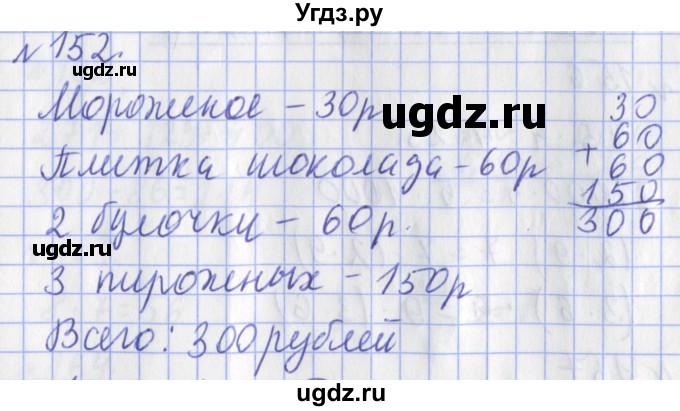 Угдз.ру
№152.
ugdz.ru
Мороженое – 30р
ugdz.ru
30
Плитка шоколада – 60р
+ 60
60
ugdz.ru
150
2 булочки – 60р.
300
3 пирожных – 150р
ugdz.ru
Всего: 300 рублей
ugdz.ru
ugdz.ru